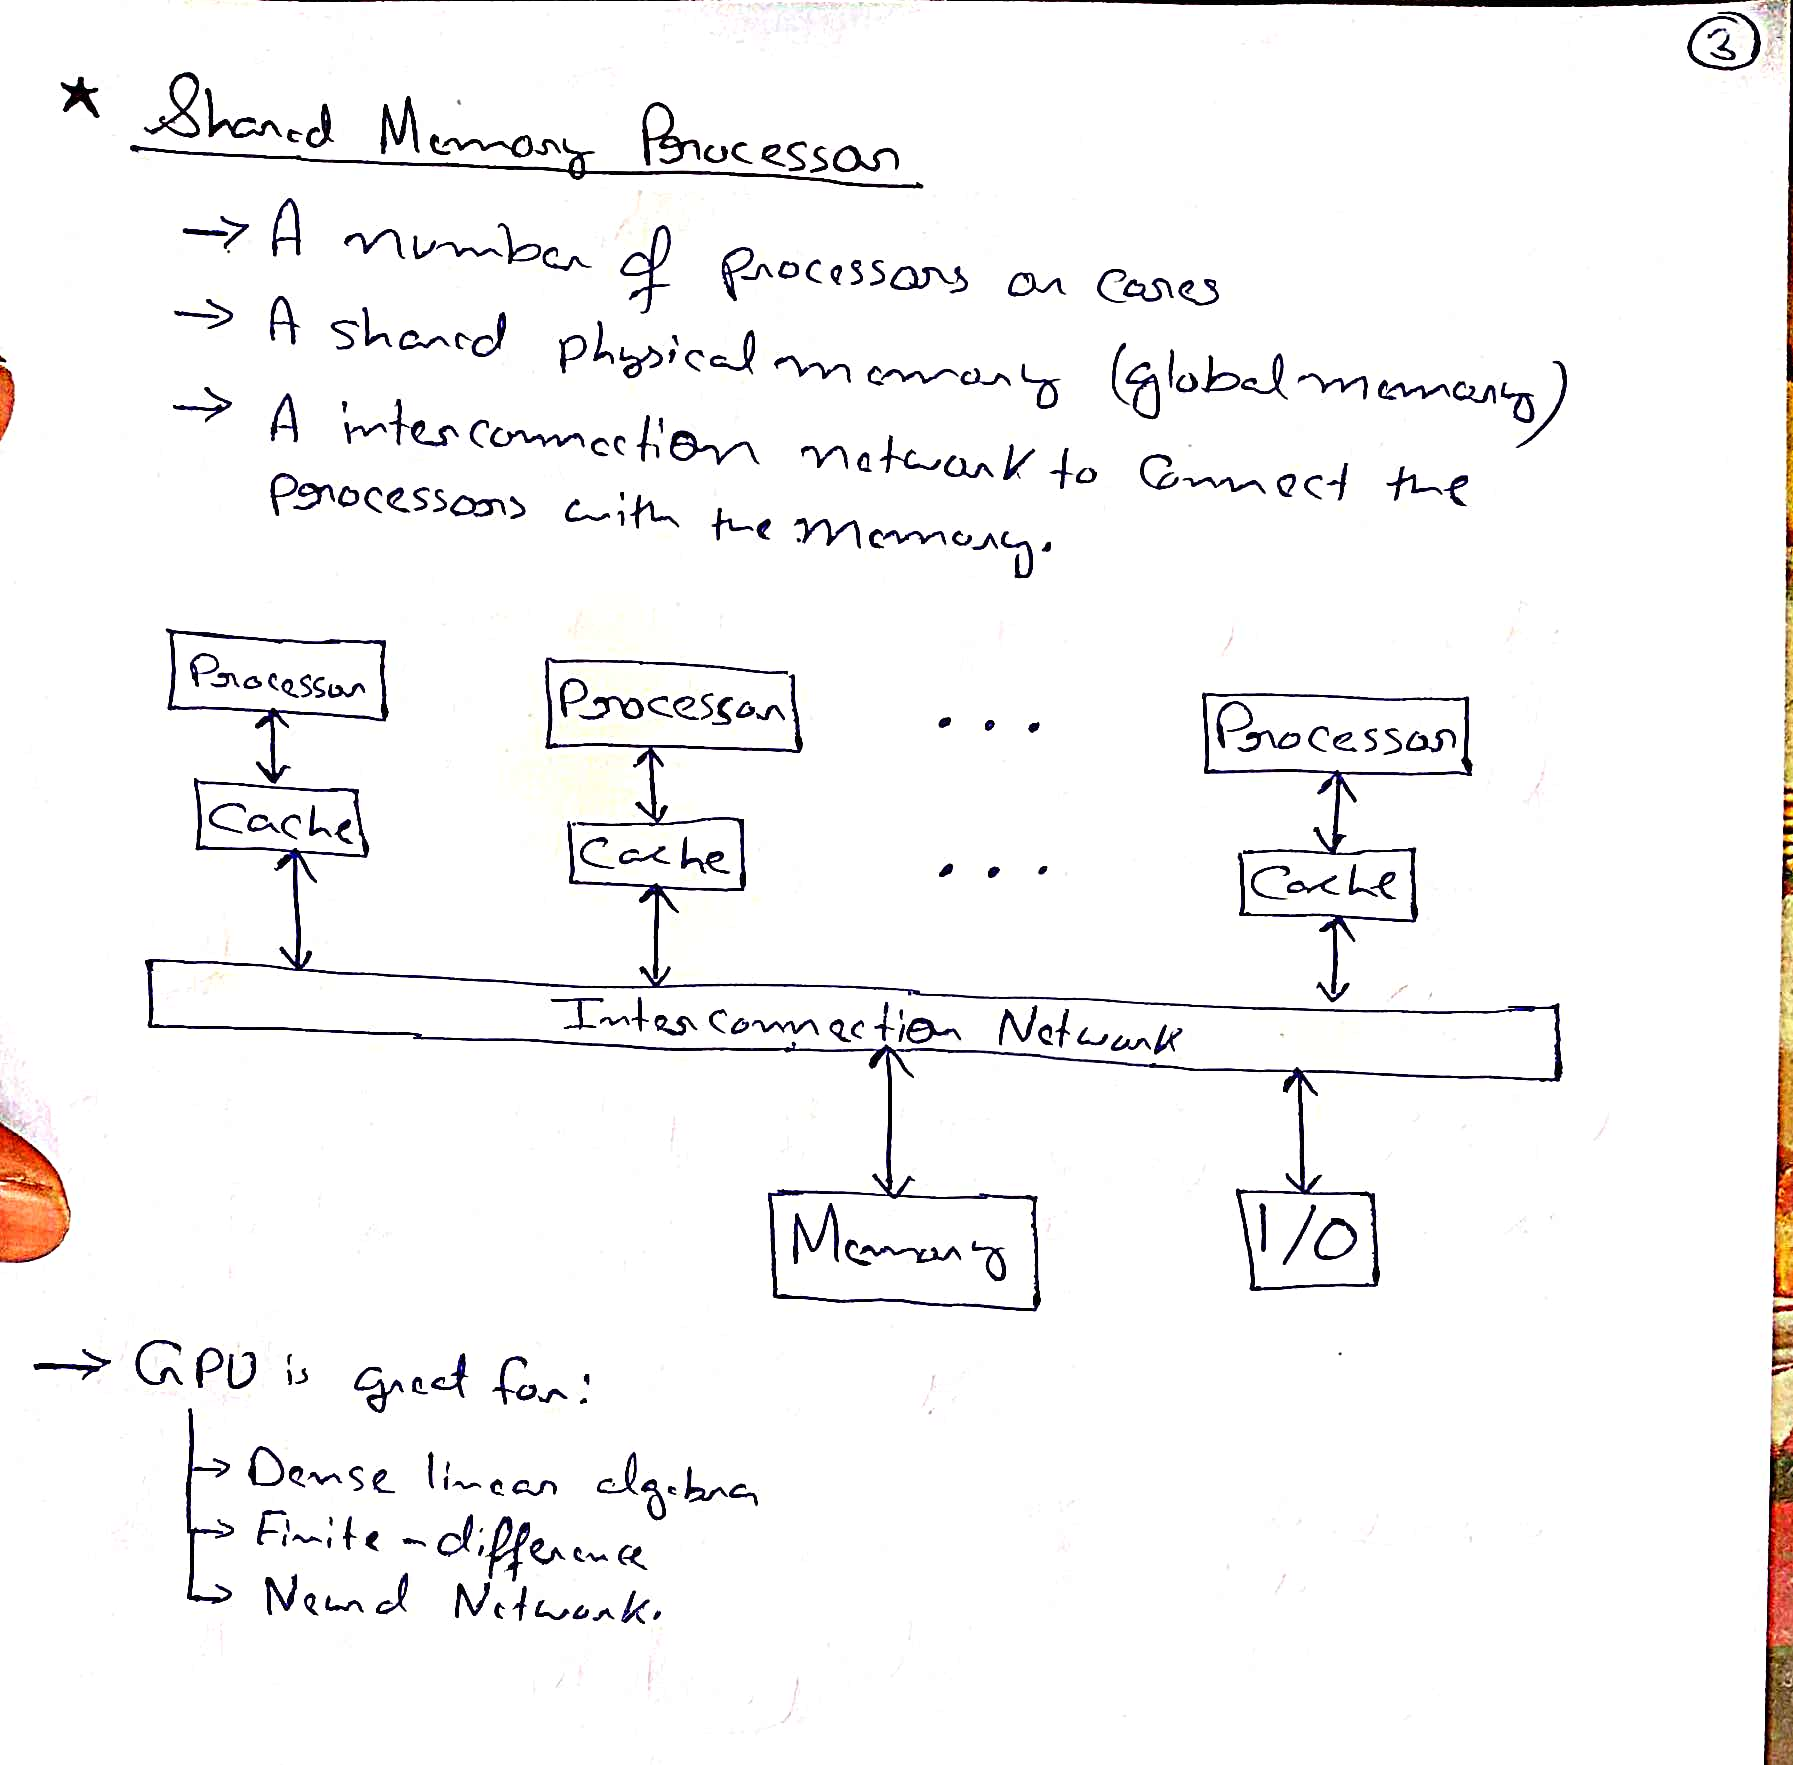 3
★ Shared Memory Processor
→ A number of processors or cores
→ A shared physical memory (global memory)
→ A interconnection network to connect the
processors with the memory.
Processor Processor ... Processor
Cache Cache ... Cache
Interconnection Network
Memory I/O
→ GPU is great for:
→ Dense linear algebra
→ Finite-difference
→ Neural Network.